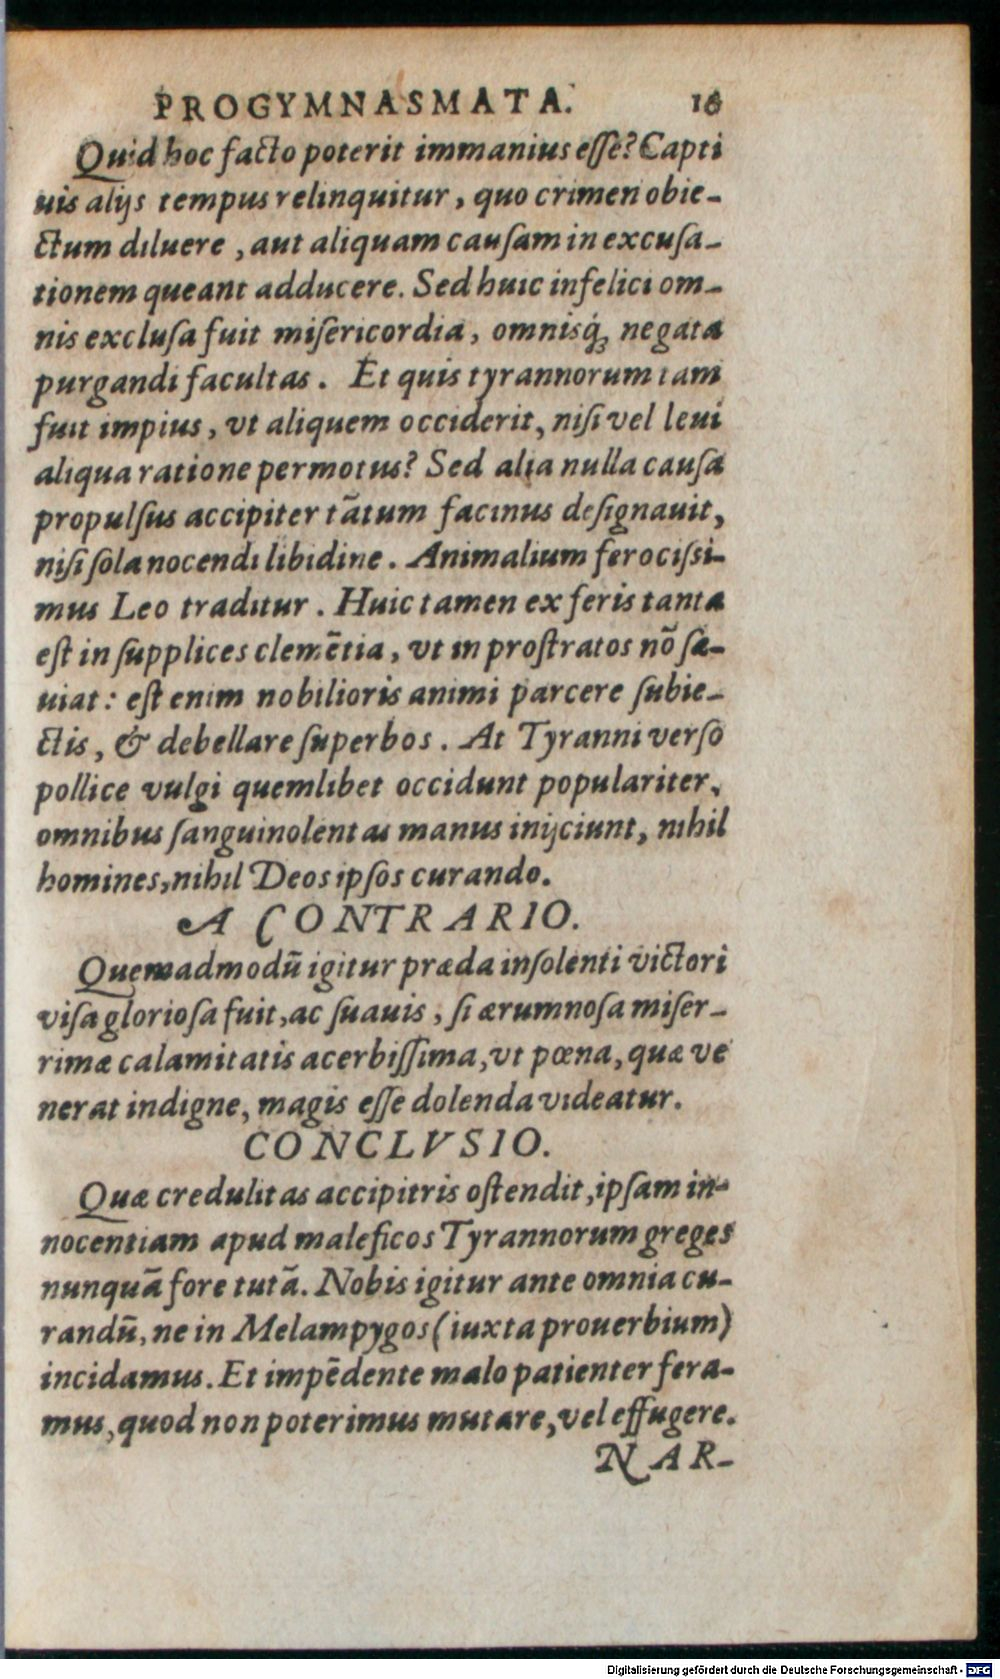 PROGYMNASMATA. 16
Quid hoc facto poterit immanius esse? Capti
uis alijs tempus relinquitur, quo crimen obie-
ctum diluere, aut aliquam causam in excusa-
tionem queant adducere. Sed huic infelici om-
nis exclusa fuit misericordia, omnisq́; negata
purgandi facultas. Et quis tyrannorum tam
fuit impius, vt aliquem occiderit, nisi vel leui
aliqua ratione permotus? Sed alia nulla causa
propulsus accipiter tãtum facinus designauit,
nisi sola nocendi libidine. Animalium ferocissi-
mus Leo traditur. Huic tamen ex feris tanta
est in supplices clemẽtia, vt in prostratos nõ sæ-
uiat: est enim nobilioris animi parcere subie-
ctis, & debellare superbos. At Tyranni verso
pollice vulgi quemlibet occidunt populariter,
omnibus sanguinolentas manus inijciunt, nihil
homines, nihil Deos ipsos curando.
A CONTRARIO.
Quemadmodũ igitur præda insolenti victori
visa gloriosa fuit, ac suauis, si ærumnosa miser-
rimæ calamitatis acerbissima, vt pœna, quæ ve
nerat indigne, magis esse dolenda videatur.
CONCLVSIO.
Quæ credulitas accipitris ostendit, ipsam in-
nocentiam apud maleficos Tyrannorum greges
nunquã fore tutã. Nobis igitur ante omnia cu-
randũ, ne in Melampygos (iuxta prouerbium)
incidamus. Et impẽdente malo patienter fera-
mus, quod non poterimus mutare, vel effugere.
NAR-
Digitalisierung gefördert durch die Deutsche Forschungsgemeinschaft - DFG